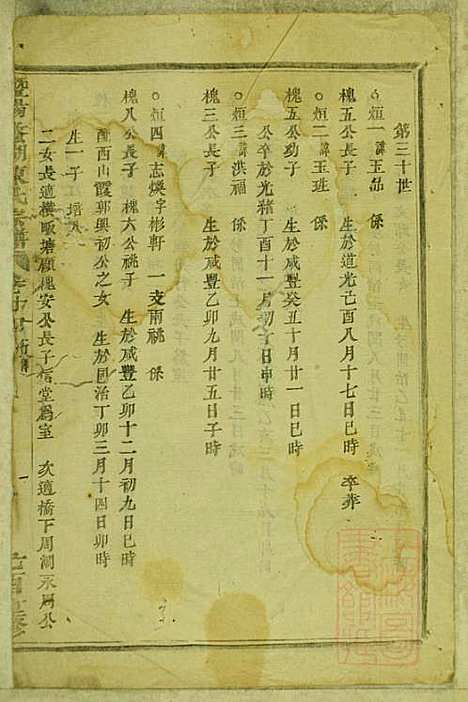 第三十世
○烜一諱玉品 係
槐五公長子 生於道光己酉八月十七日巳時 卒葬
○烜二諱玉班 係
槐五公幼子 生於咸豐癸丑十月廿一日巳時
公卒於光緒丁酉十一月初十日申時
○烜三諱洪福 係
槐三公長子 生於咸豐乙卯九月廿五日子時
○烜四諱志燦字彬軒一支兩祧 係
槐八公長子 槐六公祧子 生於咸豐乙卯十二月初九日巳時
配西山霞郭興初公之女 生於同治丁卯三月十四日卯時
生一子 培
二女長適橫畈塘顧槐安公長子 堂爲室 次適橋下周 公
暨陽 湖陳氏宗譜